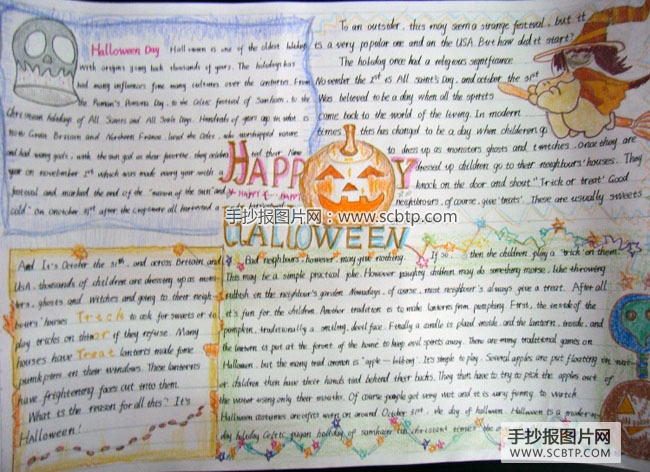 Halloween Day Halloween is one of the oldest holidays
with origins going back thousands of years. The holidays has
had many influences from many cultures over the centuries. From
the Roman's Pomona Day, to the Celtic festival of Samhain, to the
Christian holidays of All Saints and All Souls Days. Hundreds of years ago in what is
now Great Britain and Northern France, lived the Celts, who worshipped nature
and had many gods, with the sun god as their favorite. they celebrated their New
year on november 1st which was made every year with
festival and marked the end of the "season of the sun" and
cold" on October 31st after the crops were all harvested a
To an outsider, this may seem a strange festival, but it
is a very popular one and on the USA. But how did it start?
The holiday once had a religious significance.
November the 1st is All saint's Day, and october the 31st
Was believed to be a day when all the spirits
came back to the world of the living. In modern
times, this has changed to be a day when children go
to dress up as monsters ghosts and twitches. Once they are
dressed up children go to their neighbours' houses. They
knock on the door and shout "Trick or treat" Good
neighbours, of course, give 'treats'. These are usually sweets
HAPPY
HAPPY HAPPY
手抄报图片网:www.scbtp.com
HALLOWEEN
And It's October the 31st, and across Britain and
USA, thousands of children are dressing up as mons-
ters, ghosts and witches and going to their neigh-
bours' houses Trick to ask for sweets or to
play tricks on them or if they refuse. Many
houses have Treat lanterns made from
pumpkins in their windows. These lanterns
have frightening faces cut into them.
What is the reason for all this? It's
Halloween!
Bad neighbours, however, may give nothing. If so, then the children play a 'trick' on them.
This may be a simple practical joke. However naughty children may do something worse, like throwing
rubbish in the neighbour's garden. Nowadays, of course, most neighbour's always give a treat. After all
it's fun for the children. Another tradition is to make lanterns from pumpking. First, the inside of the
pumpkin, traditionally a smiling, devil face. Finally a candle is placed inside and the lantern, inside, and
the lantern is put at the front of the home to keep evil spirits away. There are many traditional games on
Halloween, but the many trad common is "apple-bobbing". It's simple to play. Several apples are put floating in wat-
er children then have their hands tied behind their backs. They then have to try to pick the apples out of
the water using only their mouths. Of course people get very wet and it is very funny to watch.
Halloween costumes are often worn on around October 31st, the day of halloween. Halloween is a modern-
day holiday Celtic pagan holiday of samhain (in christian times, the
手抄报图片网
WWW.SCBTP.COM